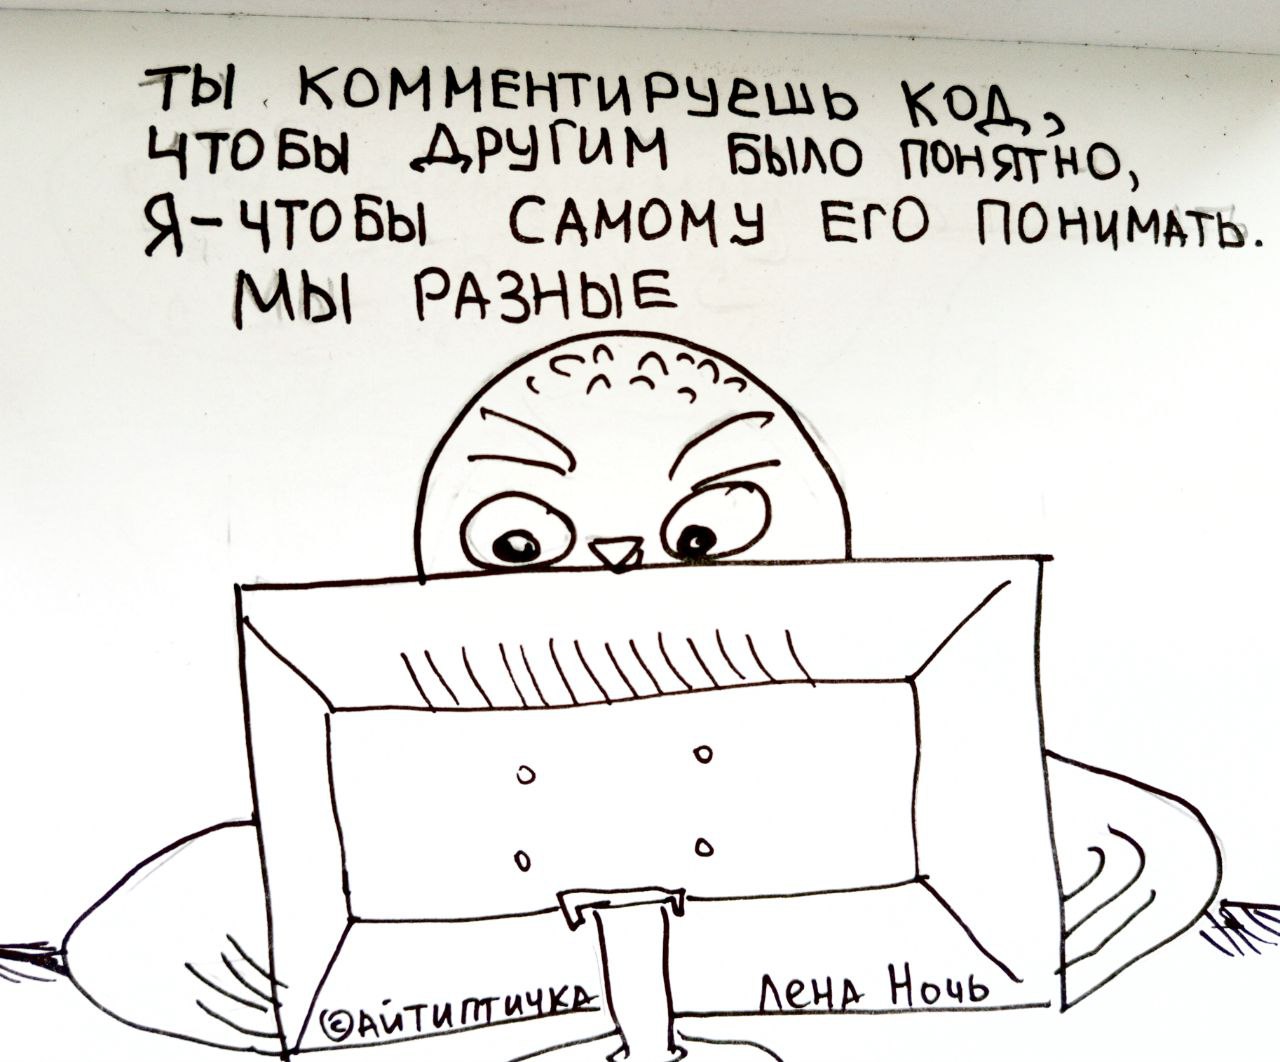 ТЫ КОММЕНТИРУЕШЬ КОД,
ЧТОБЫ ДРУГИМ БЫЛО ПОНЯТНО,
Я-ЧТОБЫ САМОМУ ЕГО ПОНИМАТЬ.
МЫ РАЗНЫЕ
©АЙТИПТИЧКА ЛЕНА НОЧЬ